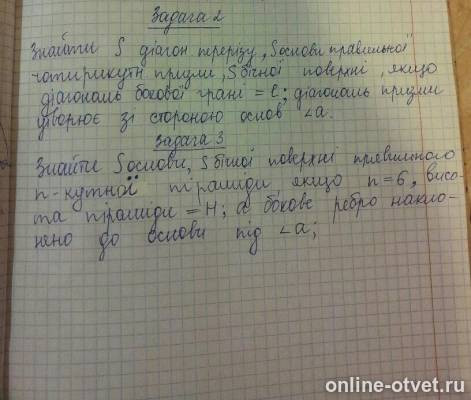 Задача 2
Знайти S діагон перерізу, S основи правильної
чотирикутн призми, S бічної поверхні, якщо
діагональ бокової грані = ℓ; діагональ призми
утворює зі стороною основ ∠α.
Задача 3
Знайти S основи, S бічної поверхні правильного
n-кутної піраміди, якщо n=6, висо-
та піраміди = H; а бокове ребро накло-
нено до основи під ∠α;
online-otvet.ru